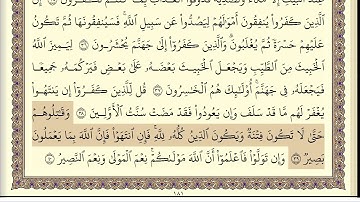 الَّذِينَ كَفَرُوا يُنفِقُونَ أَمْوَالَهُمْ لِيَصُدُّوا عَن سَبِيلِ اللَّهِ فَسَيُنفِقُونَهَا ثُمَّ تَكُونُ
عَلَيْهِمْ حَسْرَةً ثُمَّ يُغْلَبُونَ وَالَّذِينَ كَفَرُوا إِلَى جَهَنَّمَ يُحْشَرُونَ ٣٦ لِيَمِيزَ اللَّهُ
الْخَبِيثَ مِنَ الطَّيِّبِ وَيَجْعَلَ الْخَبِيثَ بَعْضَهُ عَلَى بَعْضٍ فَيَرْكُمَهُ جَمِيعًا
فَيَجْعَلَهُ فِي جَهَنَّمَ أُولَٰئِكَ هُمُ الْخَاسِرُونَ ٣٧ قُل لِّلَّذِينَ كَفَرُوا إِن يَنتَهُوا
يُغْفَرْ لَهُم مَّا قَدْ سَلَفَ وَإِن يَعُودُوا فَقَدْ مَضَتْ سُنَّتُ الْأَوَّلِينَ ٣٨ وَقَاتِلُوهُمْ
حَتَّى لَا تَكُونَ فِتْنَةٌ وَيَكُونَ الدِّينُ كُلُّهُ لِلَّهِ فَإِنِ انتَهَوْا فَإِنَّ اللَّهَ بِمَا يَعْمَلُونَ
بَصِيرٌ ٣٩ وَإِن تَوَلَّوْا فَاعْلَمُوا أَنَّ اللَّهَ مَوْلَاكُمْ نِعْمَ الْمَوْلَى وَنِعْمَ النَّصِيرُ ٤٠
١٨١